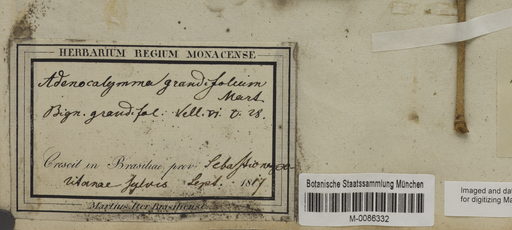 HERBARIUM REGIUM MONACENSE
Adenocalymma grandifolium
Mart.
Bign. grandifol. Vell. VI. t. 28.
Crescit in Brasiliae prov. Sebastiano
Sylvis Sept. 1817
Martius Iter Brasiliense.
Botanische Staatssammlung München
M-0086332
Imaged and da
for digitizing Ma